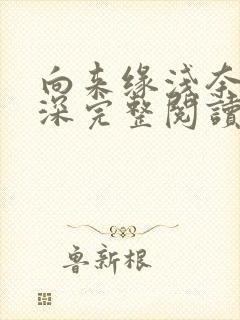 向来缘浅奈
深完整閱讀
鲁新根